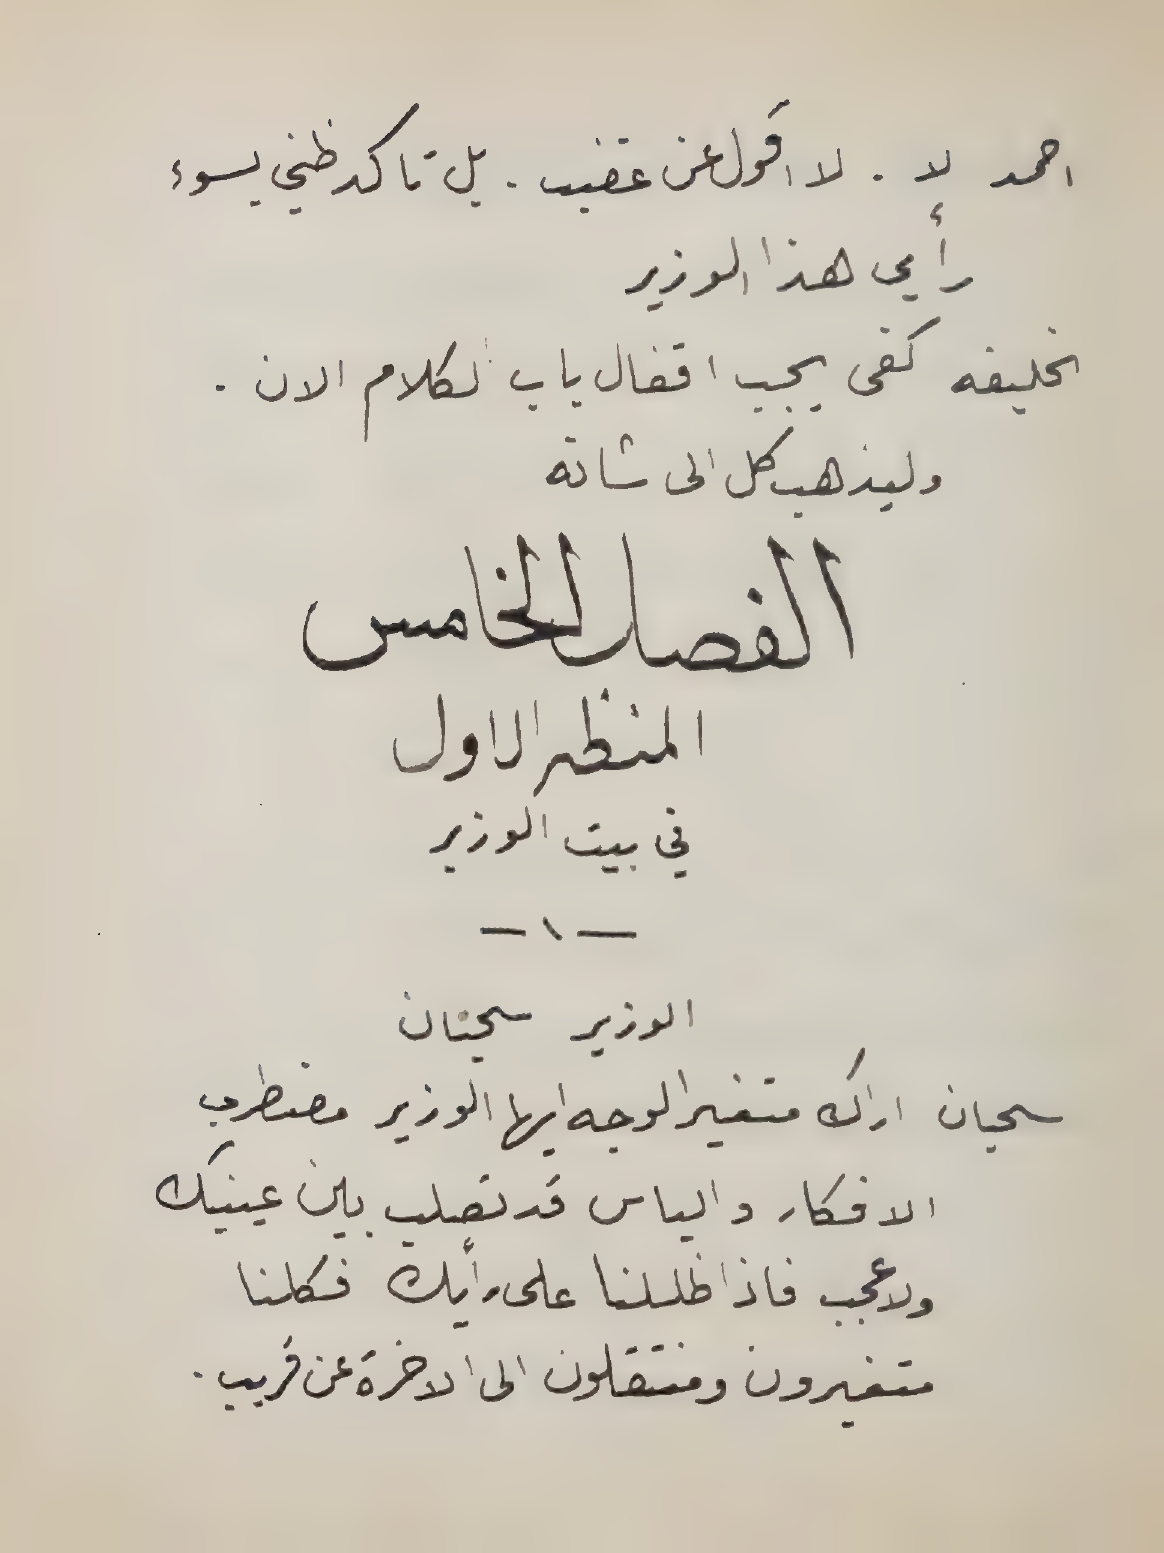 احمد لا . لا اقول عن غضب . بل تاكد ظني بسوء
رأي هذا الوزير
الخليفه كفى يجب اقفال باب الكلام الان .
وليذهب كل الى شانه
الفصل الخامس
المنظر الاول
في بيت الوزير
— ١ —
الوزير سحبان
سحبان اراك متغير الوجه ايها الوزير مضطرب
الافكار والياس قد تصلب بين عينيك
ولا عجب فاذا ظللنا على رأيك فكلنا
متغيرون ومنتقلون الى الاخرة عن قريب .